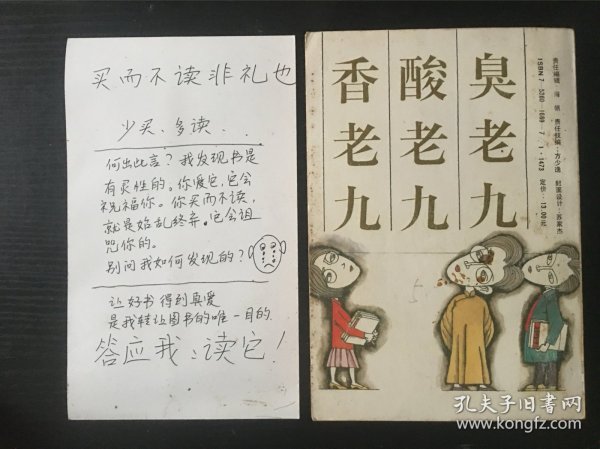 买而不读非礼也
少买、多读...
何出此言？我发现书是
有灵性的。你爱它，它会
祝福你。你买而不读，
就是始乱终弃。它会诅
咒你的。
别问我如何发现的？
让好书得到真爱
是我转让图书的唯一目的.
答应我：读它！
臭老九
酸老九
香老九
责任编辑
责任校编：方少逸
封面设计：苏家杰
ISBN 7-5360-1689-7/I·1473
定价：13.00元
5
孔夫子旧书网
www.kongfz.com